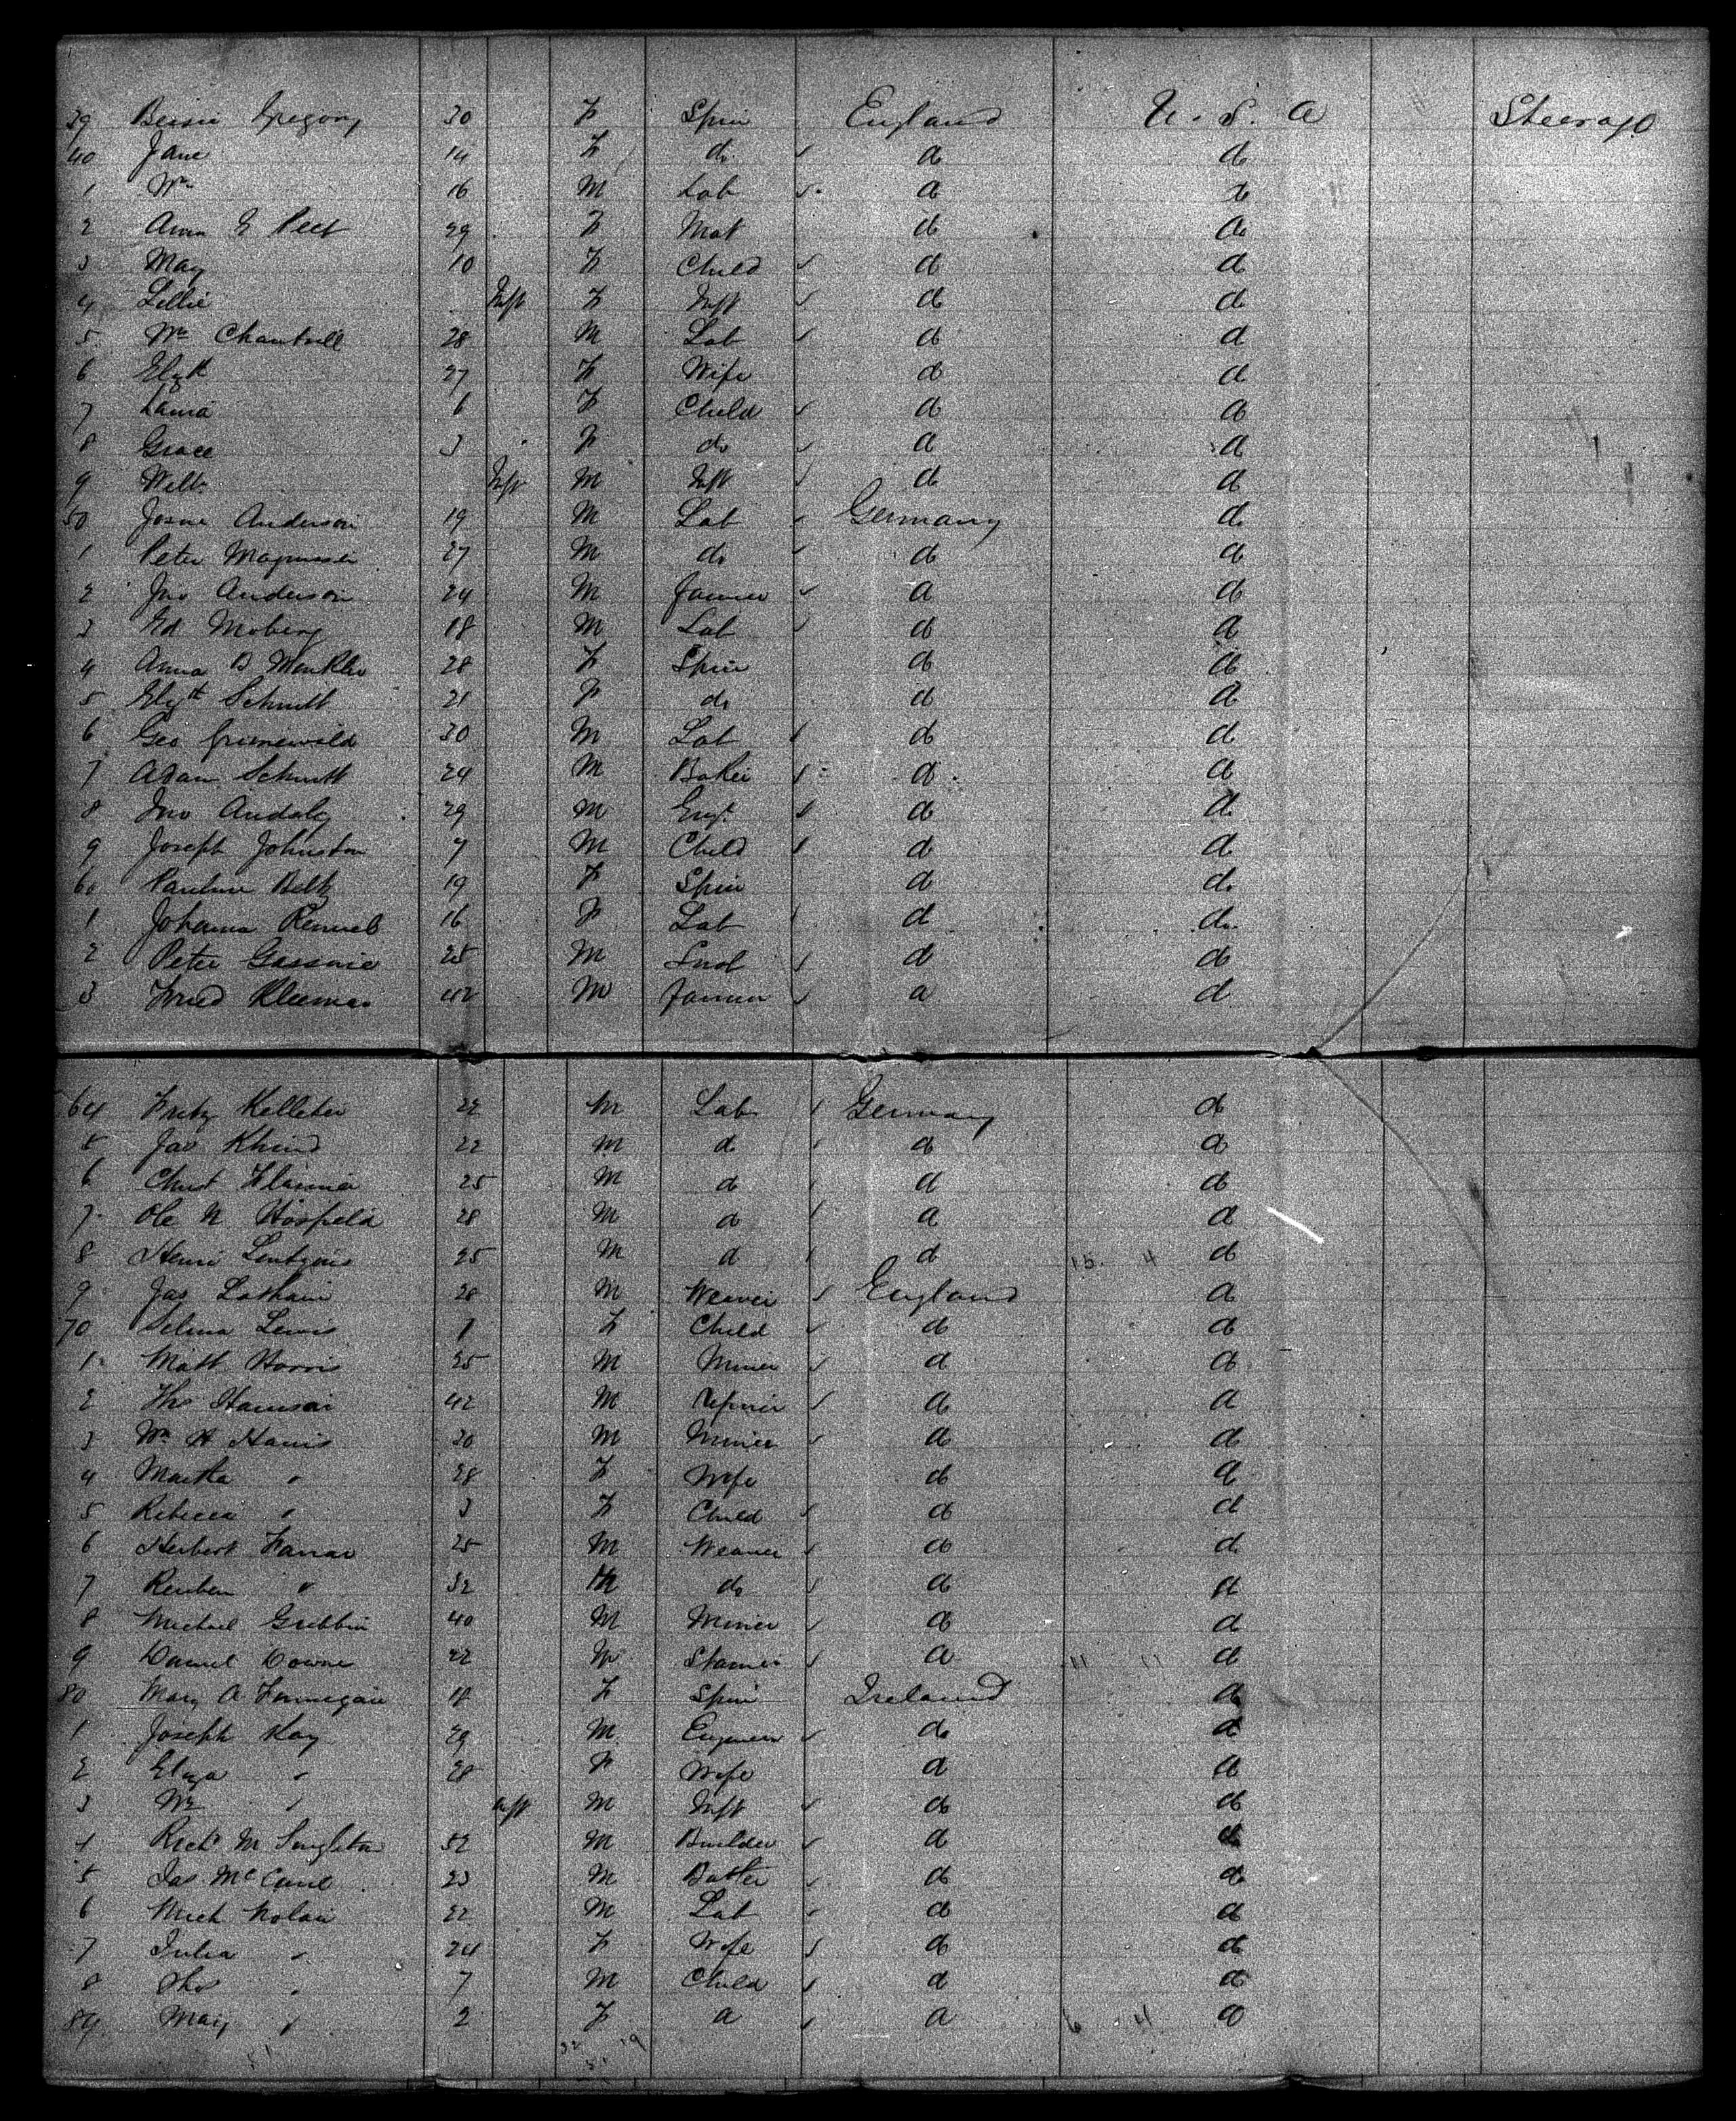 39 Bessie Gregory 30 F Spin England U. S. A Steerage
40 Jane 14 F do do do
1 Wm 16 M Lab do do
2 Ann E Peet 29 F Mat do do
3 May 10 F Child do do
4 Lillie Inft F Inft do do
5 Wm Chantrell 28 M Lab do do
6 Elizth 27 F Wife do do
7 Laura 6 F Child do do
8 Grace 3 F do do do
9 Inft M Inft do do
50 Anderson 19 M Lab Germany do
1 Peter Magnussen 27 M do do do
2 Jno Anderson 24 M Farmer do do
3 Ed Moberg 18 M Lab do do
4 Anna B 28 F Spin do do
5 Elizth Schmitt 21 F do do do
6 Geo Grunewald 30 M Lab do do
7 Adam Schmitt 24 M Baker do do
8 Jno 29 M Engr do do
9 Joseph Johnston 7 M Child do do
60 Pauline Beltz 19 F Spin do do
1 Johanna 16 F Lab do do
2 Peter 25 M do do
3 Fried 42 M Farmer do do
64 Fritz 22 M Lab Germany do
5 22 M do do do
6 Christ 25 M do do do
7 Ole N 28 M do do do
8 Henri 25 M do do 15 4 do
9 Jas Latham 28 M Weaver England do
70 Selina Lewis 7 F Child do do
1 Matt Harris 25 M Miner do do
2 Thos Harrison 42 M do do
3 Wm H Harris 30 M Miner do do
4 Martha " 28 F Wife do do
5 Rebecca " 3 F Child do do
6 Herbert Farrar 25 M Weaver do do
7 Reuben " 32 M do do do
8 Michael Gribbin 40 M Miner do do
9 Daniel 22 M do 11 11 do
80 Mary A Finnegan 18 F Spin Ireland do
1 Joseph Kay 29 M Engineer do do
2 Eliza " 28 F Wife do do
3 Wm " Inft M Inft do do
4 Richd M Singleton 52 M Builder do do
5 Jas 23 M do do
6 Mich Nolan 22 M Lab do do
7 Julia " 24 F Wife do do
8 Thos " 7 M Child do do
89 Mary " 2 F do do 6 4 do
51 32 19
51